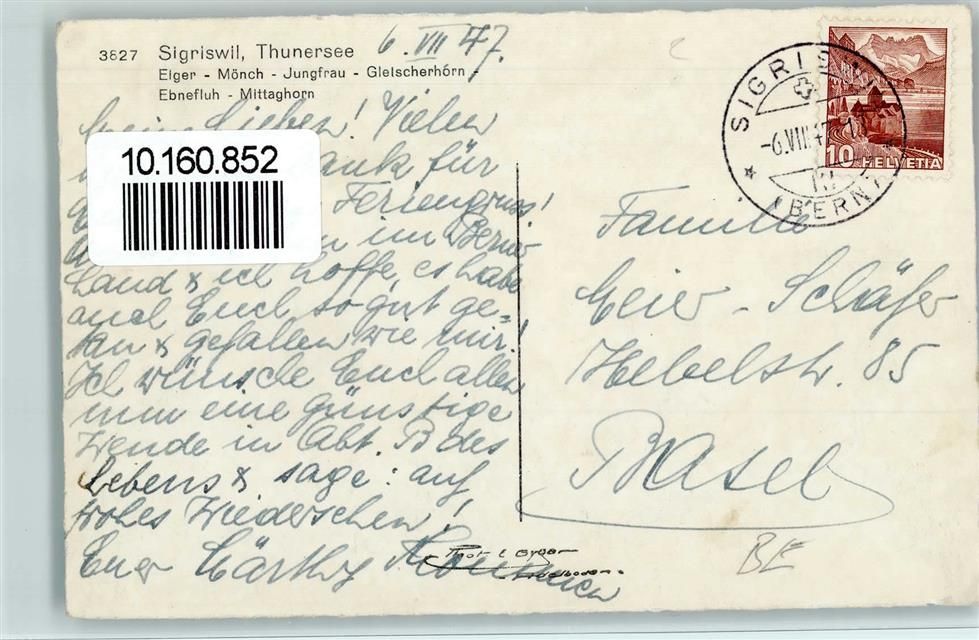 3827 Sigriswil, Thunersee 6. VIII 47.
Eiger - Mönch - Jungfrau - Gletscherhorn -
Ebnefluh - Mittaghorn
Meine Lieben! Vielen
10.160.852
Dank für
Feriengruss!
im Berner
Land & ich hoffe, es habe
auch Euch so gut ge=
tan & gefallen wie mir!
Ich wünsche Euch allen
nun eine günstige
Wende in Abt. B des
Lebens & sage: auf
frohes Wiedersehen!
Euer
SIGRISWIL
-6.VIII.47
(BERN)
10 HELVETIA
Familie
Meier - Schäfer
Hebelstr. 85
Basel
Phot. E. Gyger
Adelboden
BE